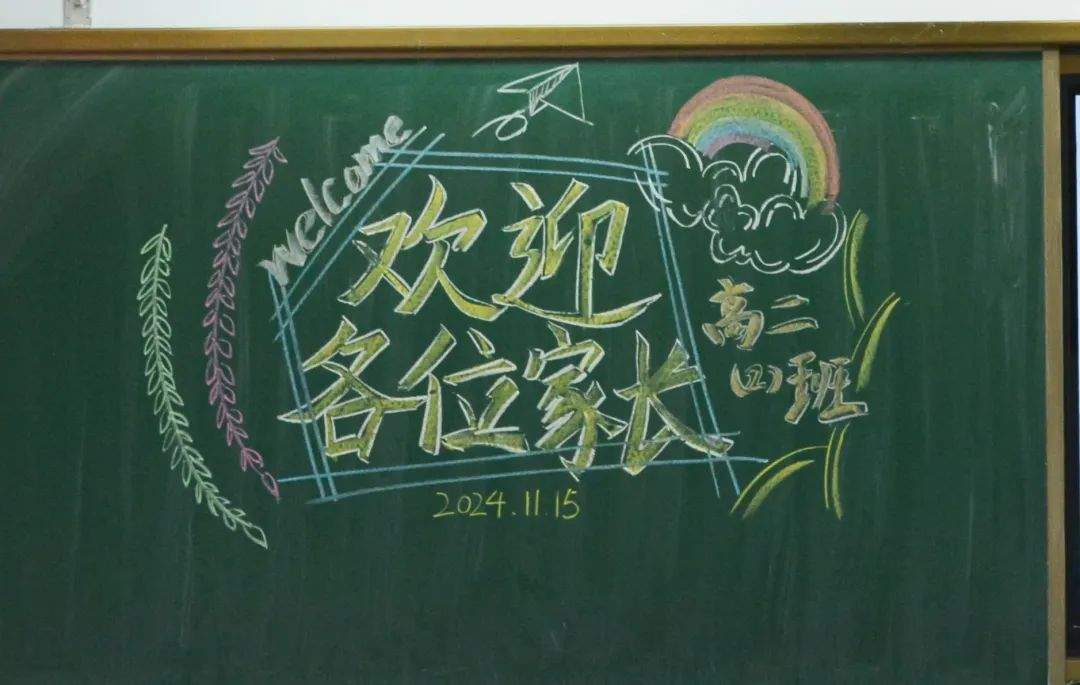 welcome
欢迎
各位家长
高二
(2)班
2024.11.15